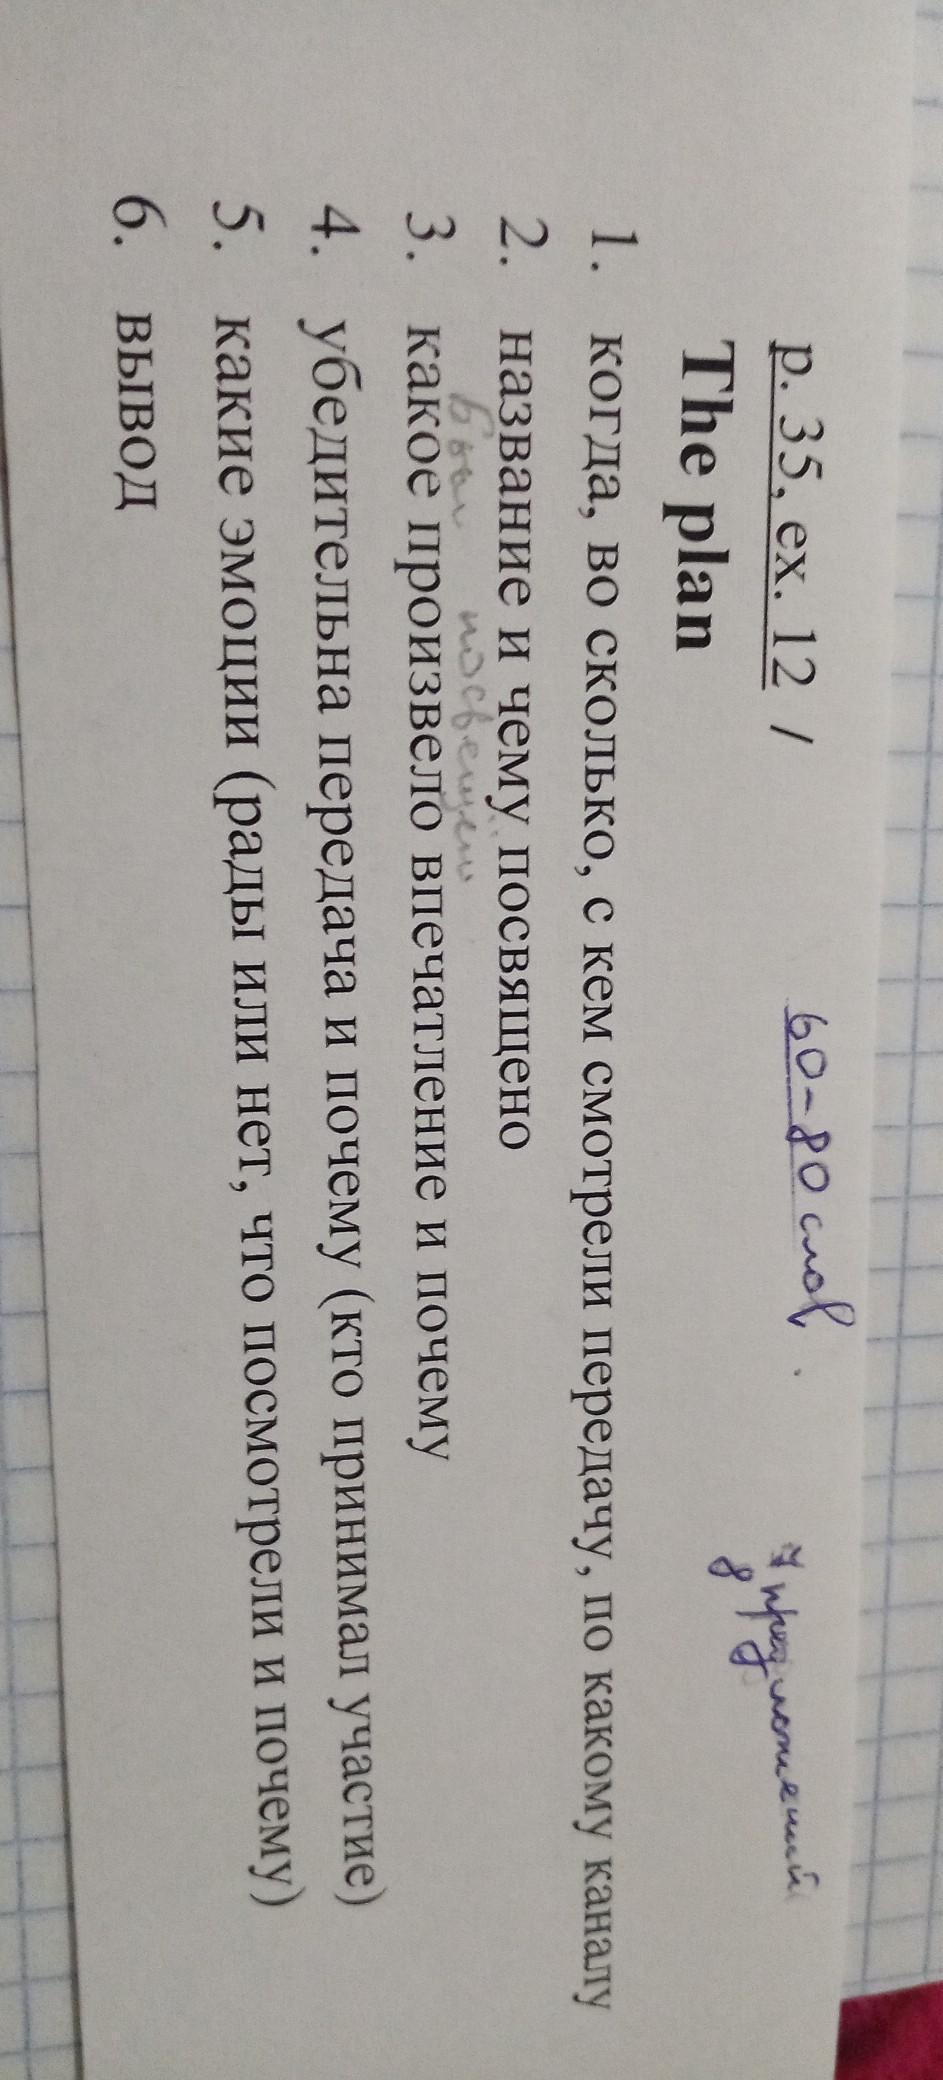 p. 35, ex. 12 / 60-80 слов.
7 предложений
8
The plan
1. когда, во сколько, с кем смотрели передачу, по какому каналу
2. название и чему посвящено
был посвещен
3. какое произвело впечатление и почему
4. убедительна передача и почему (кто принимал участие)
5. какие эмоции (рады или нет, что посмотрели и почему)
6. вывод